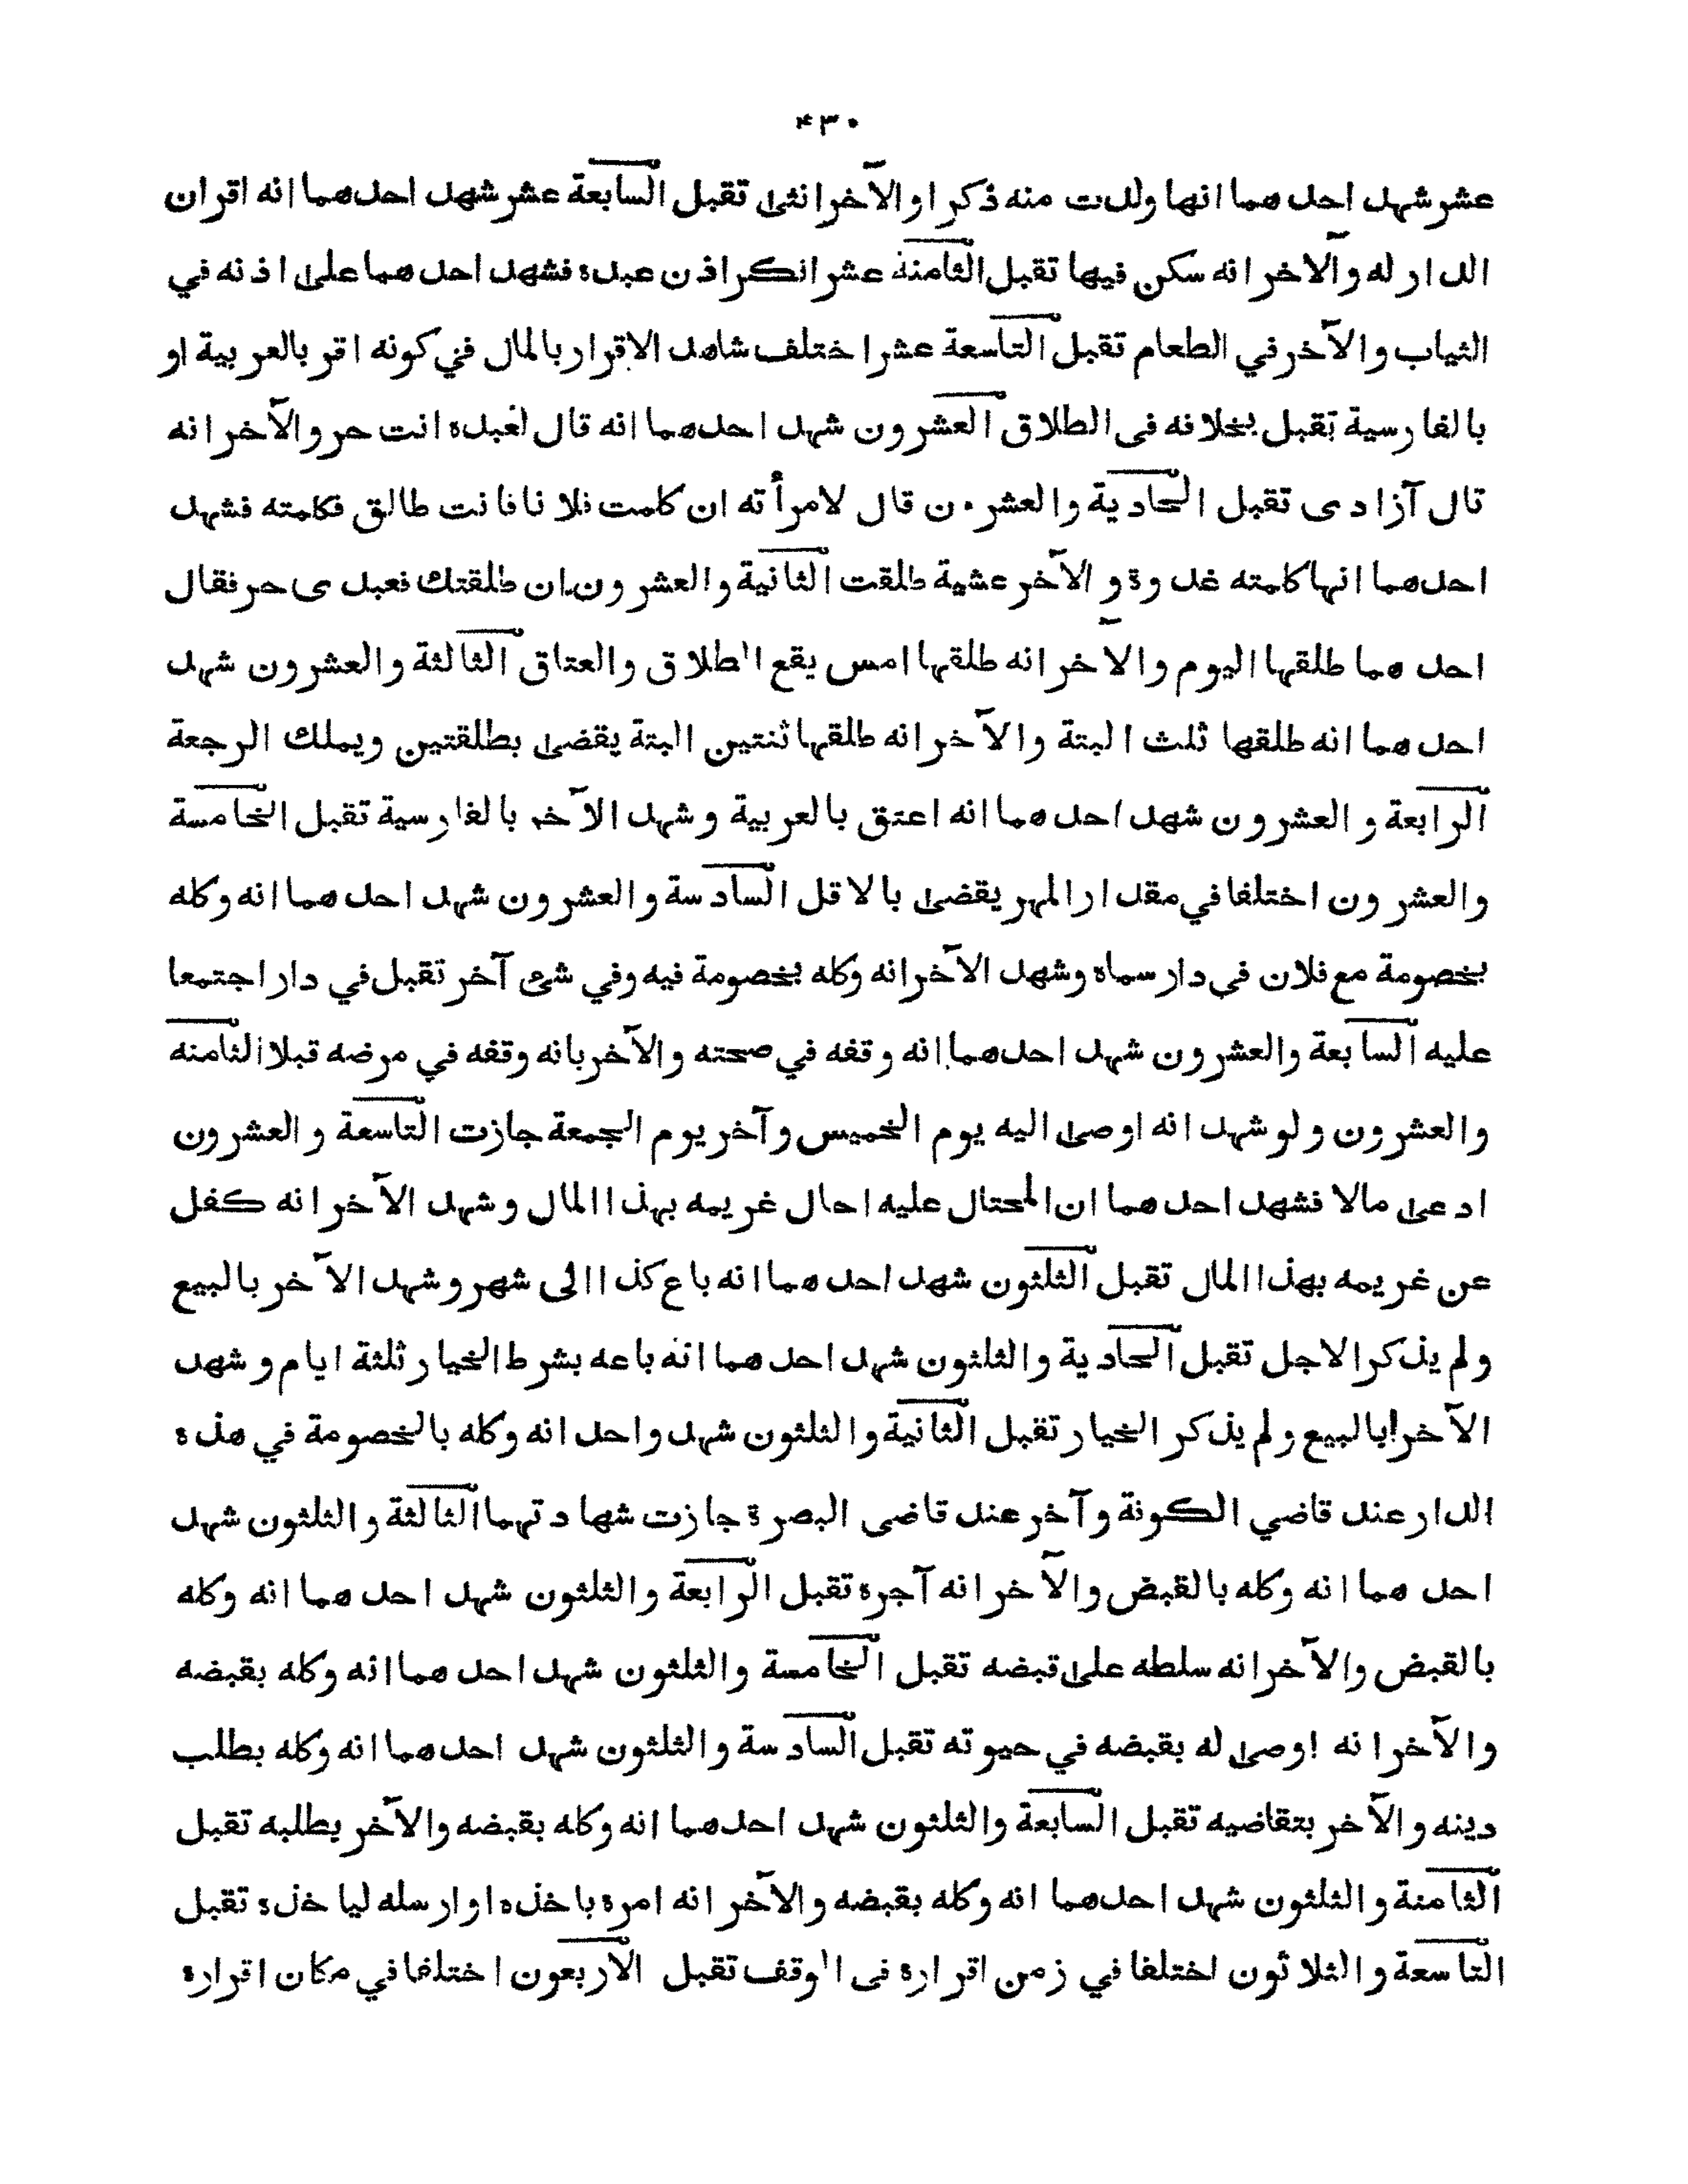 ۴۳۰
عشر شهد احدهما انها ولدت منه ذكرا والآخر انثى تقبل السابعة عشر شهد احدهما انه اقر ان
الدار له والآخر انه سكن فيها تقبل الثامنة عشر انكر اذن عبده فشهد احدهما على اذنه في
الثياب والآخر في الطعام تقبل التاسعة عشر اختلف شاهد الاقرار بالمال في كونه اقر بالعربية او
بالفارسية تقبل بخلافه فى الطلاق العشرون شهد احدهما انه قال لعبده انت حر والآخر انه
قال آزادى تقبل الحادية والعشرون قال لامرأته ان كلمت فلانا فانت طالق فكلمته فشهد
احدهما انها كلمته غدوة والآخر عشية طلقت الثانية والعشرون ان طلقتك فعبدى حر فقال
احدهما طلقها اليوم والآخر انه طلقها امس يقع الطلاق والعتاق الثالثة والعشرون شهد
احدهما انه طلقها ثلث البتة والآخر انه طلقها ثنتين البتة يقضى بطلقتين ويملك الرجعة
الرابعة والعشرون شهد احدهما انه اعتق بالعربية وشهد الآخر بالفارسية تقبل الخامسة
والعشرون اختلفا في مقدار المهر يقضى بالاقل السادسة والعشرون شهد احدهما انه وكله
بخصومة مع فلان في دار سماه وشهد الآخر انه وكله بخصومة فيه وفي شئ آخر تقبل في دار اجتمعا
عليه السابعة والعشرون شهد احدهما انه وقفه في صحته والآخر بانه وقفه في مرضه قبلا الثامنه
والعشرون ولو شهد انه اوصى اليه يوم الخميس وآخر يوم الجمعة جازت التاسعة والعشرون
ادعى مالا فشهد احدهما ان المحتال عليه احال غريمه بهذا المال وشهد الآخر انه كفل
عن غريمه بهذا المال تقبل الثلثون شهد احدهما انه باع كذا الى شهر وشهد الآخر بالبيع
ولم يذكر الاجل تقبل الحادية والثلثون شهد احدهما انه باعه بشرط الخيار ثلثة ايام وشهد
الآخر بالبيع ولم يذكر الخيار تقبل الثانية والثلثون شهد واحد انه وكله بالخصومة في هذه
الدار عند قاضي الكوفة وآخر عند قاضى البصرة جازت شهادتهما الثالثة والثلثون شهد
احدهما انه وكله بالقبض والآخر انه آجره تقبل الرابعة والثلثون شهد احدهما انه وكله
بالقبض والآخر انه سلطه على قبضه تقبل الخامسة والثلثون شهد احدهما انه وكله بقبضه
والآخر انه اوصى له بقبضه في حيوته تقبل السادسة والثلثون شهد احدهما انه وكله بطلب
دينه والآخر بتقاضيه تقبل السابعة والثلثون شهد احدهما انه وكله بقبضه والآخر بطلبه تقبل
الثامنة والثلثون شهد احدهما انه وكله بقبضه والآخر انه امره باخذه او ارسله لياخذه تقبل
التاسعة والثلاثون اختلفا في زمن اقراره فى الوقف تقبل الاربعون اختلفا في مكان اقراره